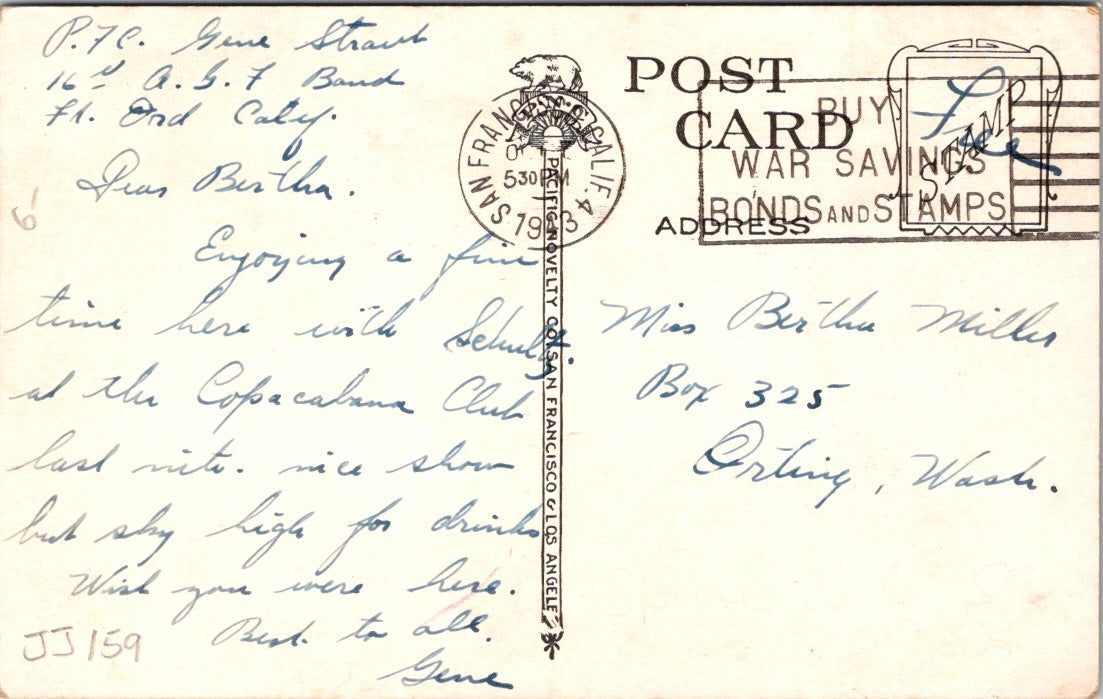 P.F.C. Gene Straub
16th A.G.F Band
Ft. Ord Calif.
Dear Bertha.
Enjoying a fine
time here with Schultz.
at the Copacabana Club
last nite. nice show
but sky high for drinks
Wish you were here.
Best to all.
Gene
JJ159
6
SAN FRANCISCO, CALIF. 4
530PM
1943
PACIFIC NOVELTY CO. SAN FRANCISCO & LOS ANGELES
POST
CARD
ADDRESS
BUY
WAR SAVINGS
BONDS AND STAMPS
STAMP
Free
Miss Bertha Miller
Box 325
Orting, Wash.